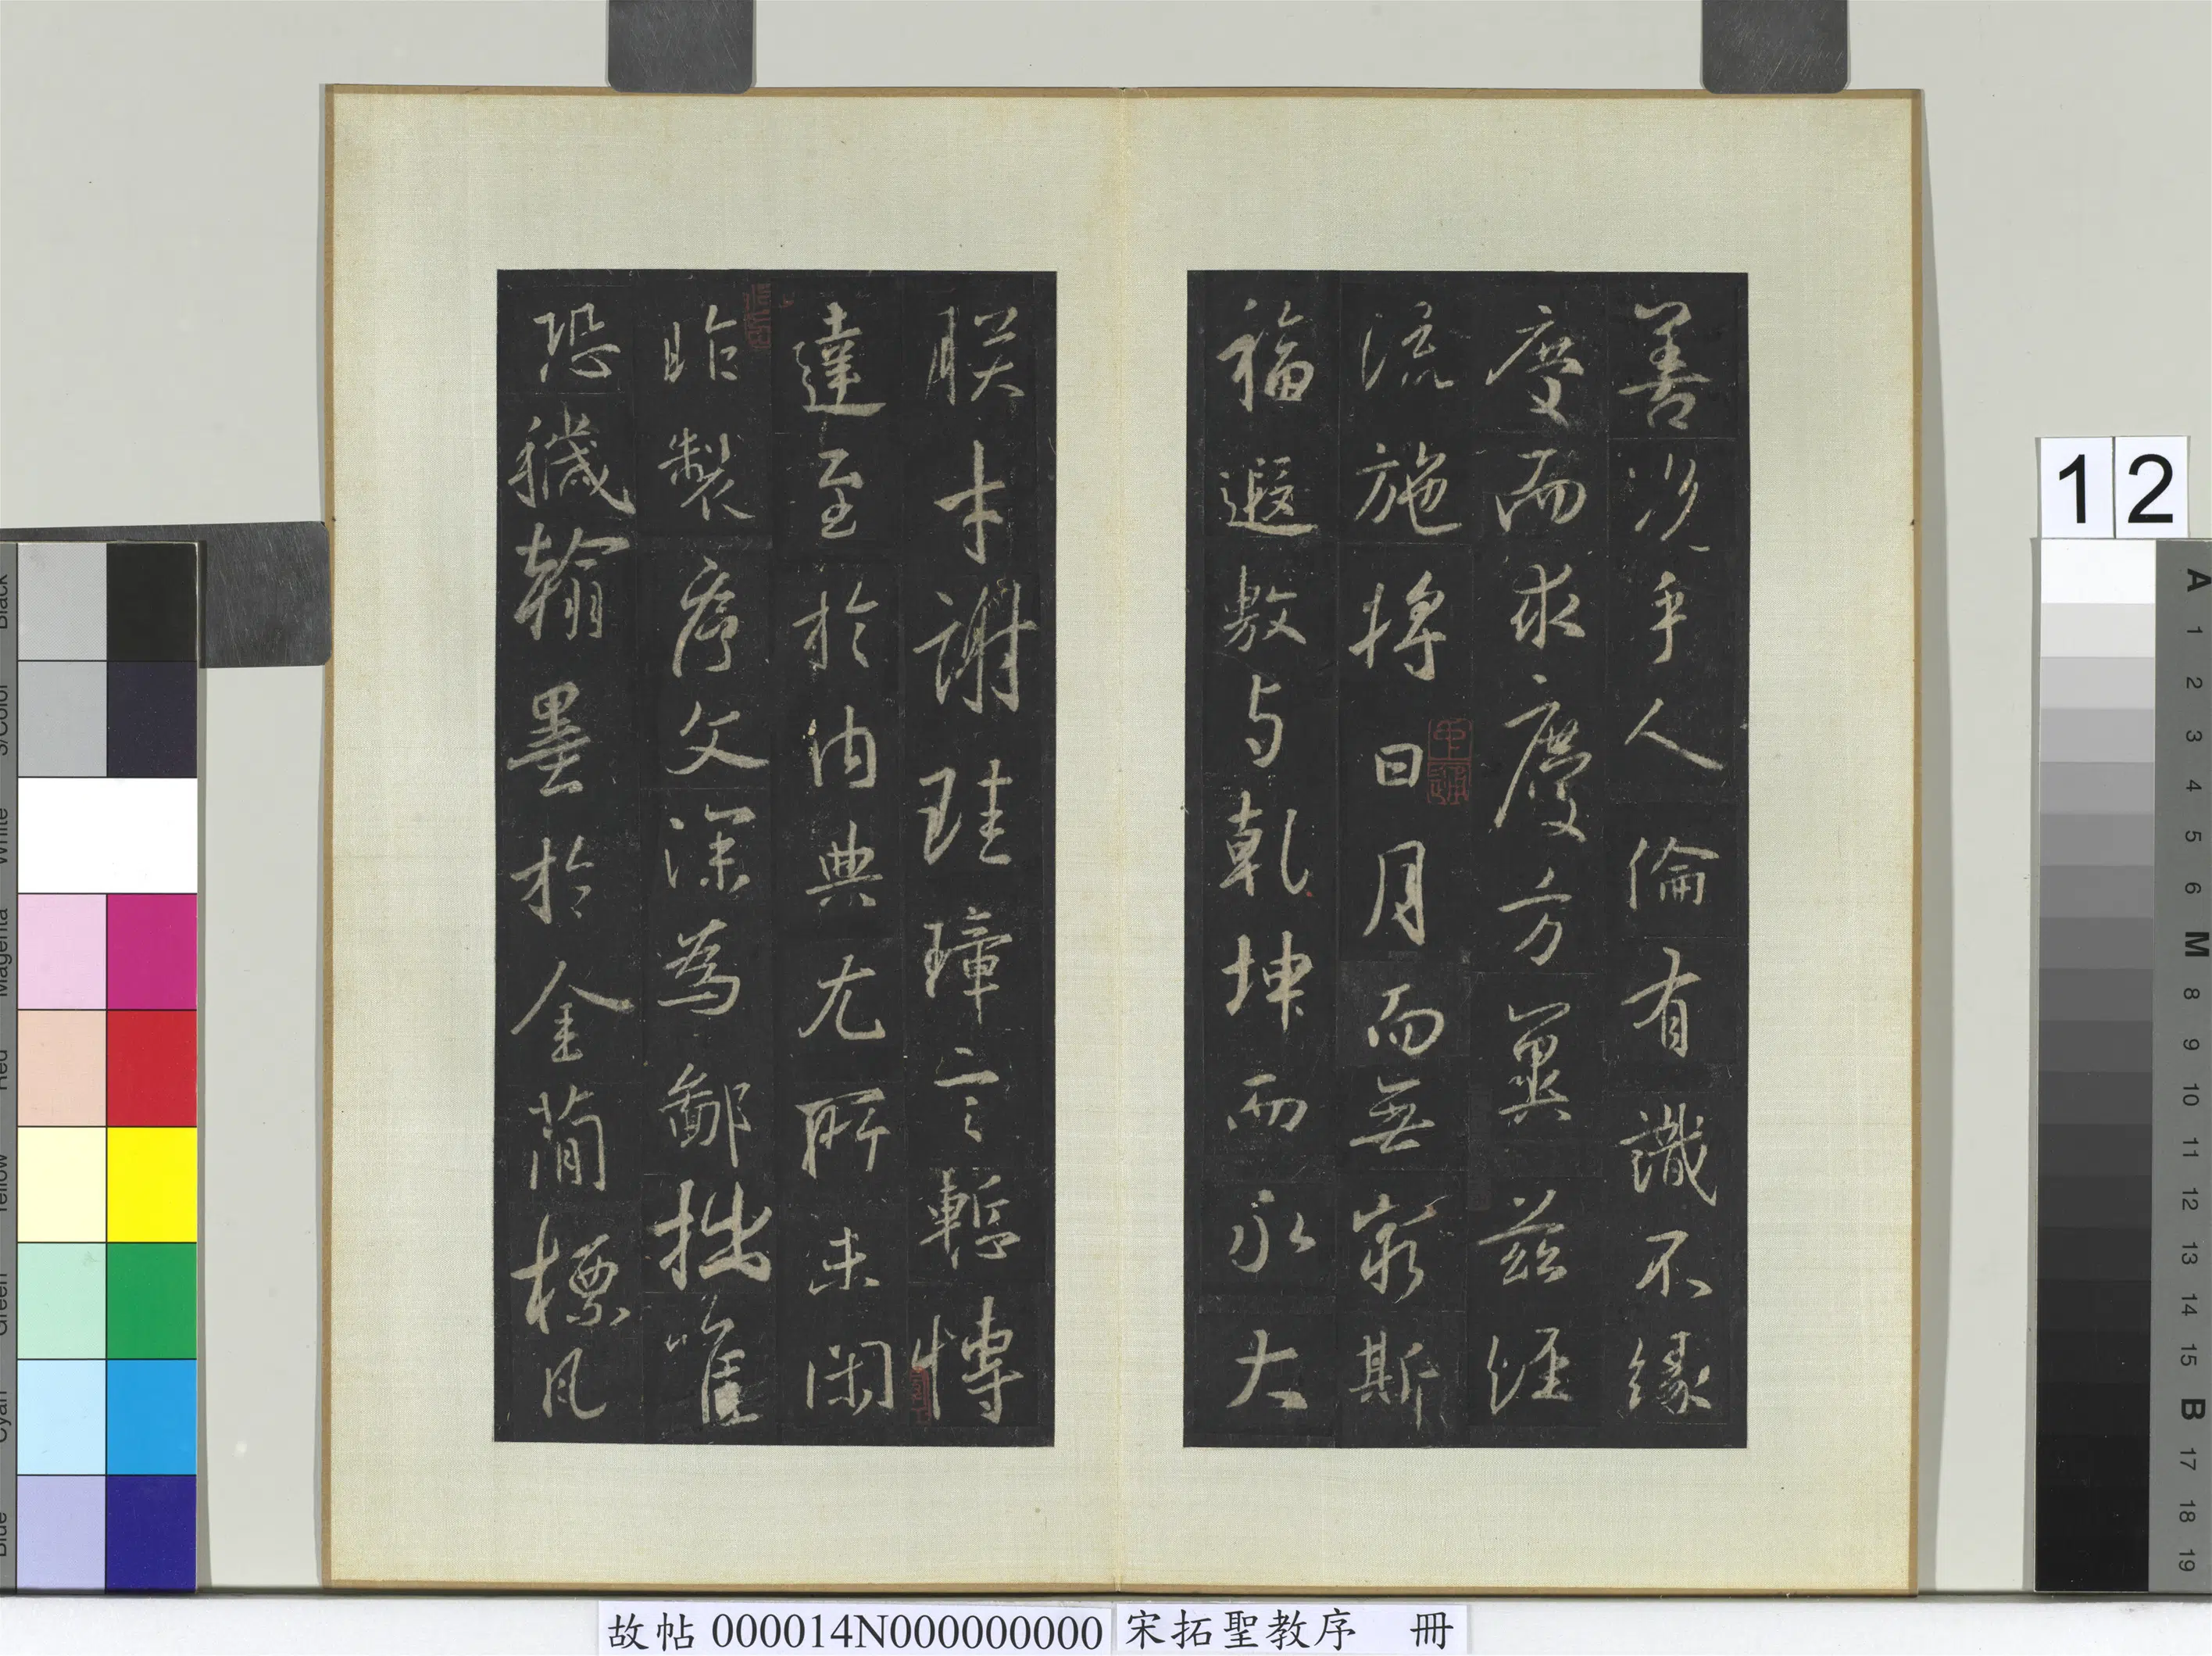 善況乎人倫有識不緣
慶而求慶方冀茲經
流施將日月而無窮斯
福遐敷与乾坤而永大
朕才謝珪璋言慙博
達至於內典尤所未閑
昨製序文深為鄙拙唯
恐穢翰墨於金簡標
瓦
12
A
1
2
3
4
5
6
M
8
9
10
11
12
13
14
15
B
17
18
19
Black
3/Color
White
Magenta
Red
Yellow
Green
Cyan
Blue
故帖 000014N000000000 宋拓聖教序 冊